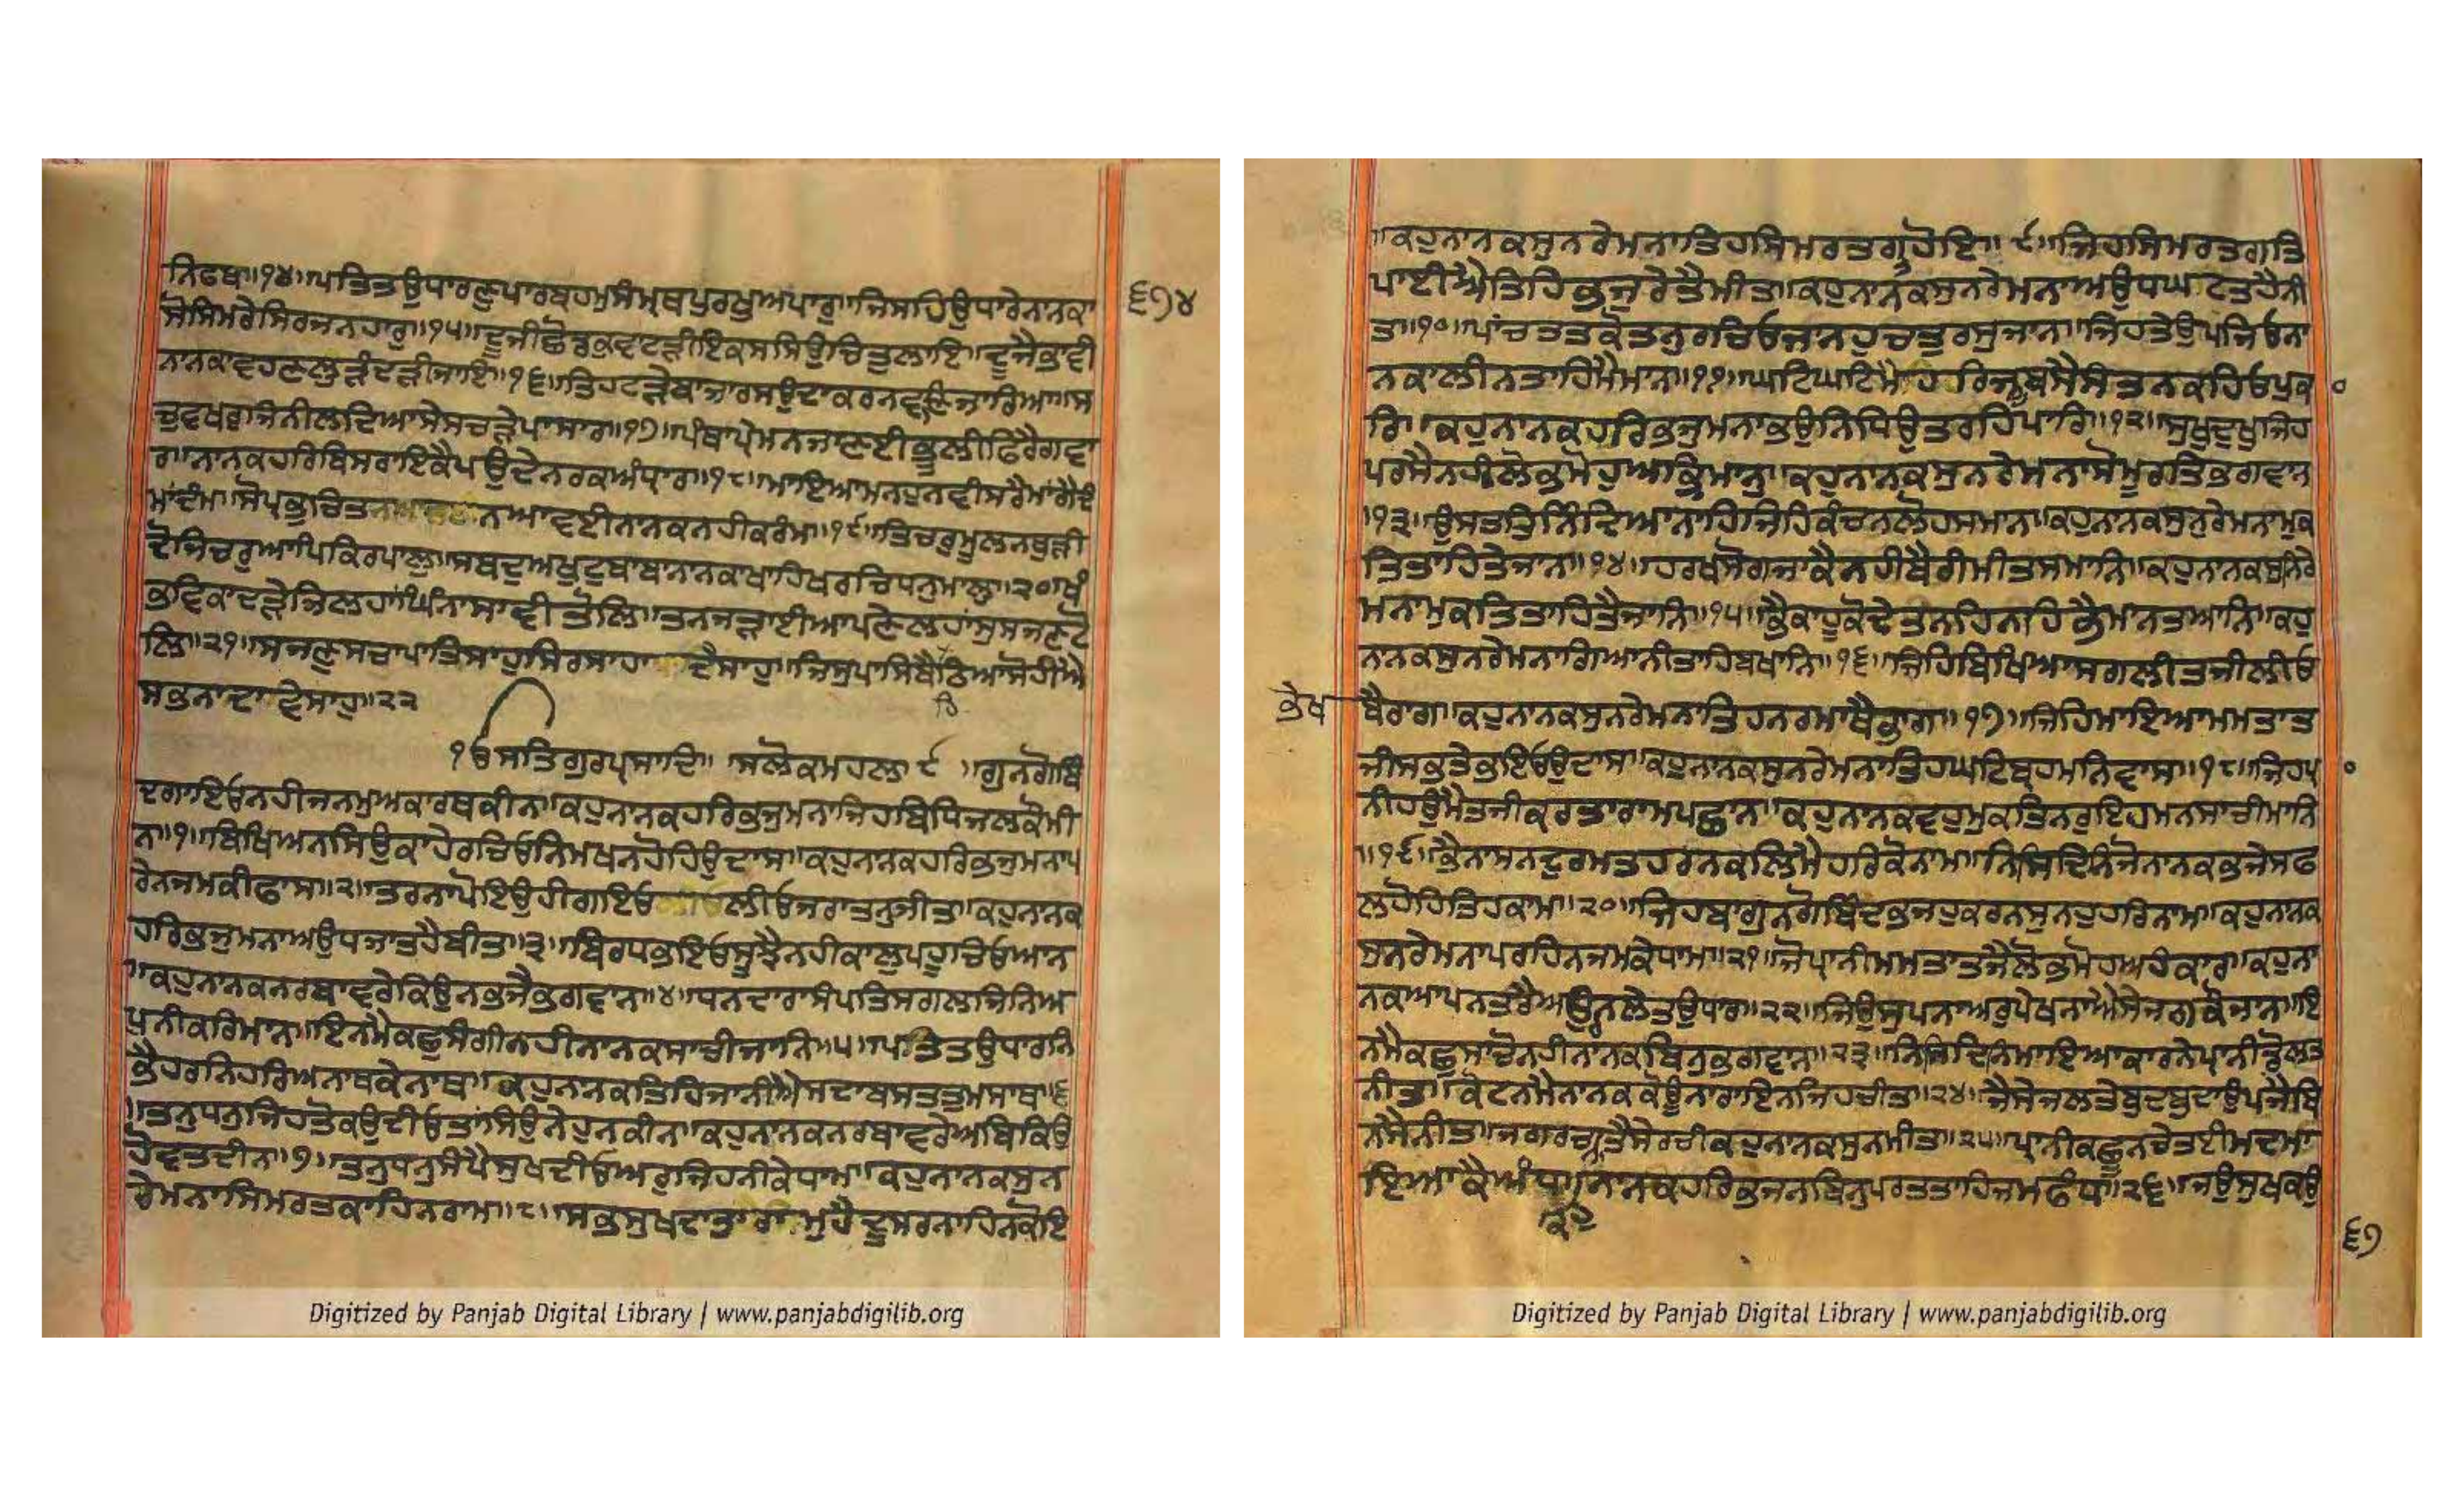 ਨਿਫਬ॥੧੪॥ਪਤਿਤਉਧਾਰਣੁਪਾਰਬ੍ਰਹਮੁਸੰਮ੍ਰਥਪੁਰਖੁਅਪਾਰੁ॥ਜਿਸਹਿਉਧਾਰੇਨਾਨਕਾ
੬੭੪
ਸੋਸਿਮਰੇਸਿਰਜਨਹਾਰੁ॥੧੫॥ਦੂਜੀਛੋਡੁਕੁਵਾਟੜੀਇਕਸਸਿਉਚਿਤੁਲਾਇ॥ਦੂਜੈਭਾਵੀ
ਨਾਨਕਾਵਹਣਲੁੜੰਦੜੀਜਾਇ॥੧੬॥ਤਿਹਟੜੇਬਾਜਾਰਸਉਦਾਕਰਨਵਣਜਾਰਿਆ॥ਸ
ਚੁਵਖਰੁਜਿਨੀਲਦਿਆਸੇਸਚੜੇਪਾਸਾਰ॥੧੭॥ਪੰਥਾਪ੍ਰੇਮਨਜਾਣਈਭੂਲੀਫਿਰੈਗਵਾ
ਰ॥ਨਾਨਕਹਰਿਬਿਸਰਾਇਕੈਪਉਦੇਨਰਕਅੰਧ੍ਯਾਰ॥੧੮॥ਮਾਇਆਮਨਹੁਨਵੀਸਰੈਮਾਂਗੈਦੰ
ਮਾਂਦੰਮਾ॥ਸੋਪ੍ਰਭੁਚਿਤਨਆਵਈਨਾਨਕਨਹੀਕਰੰਮਾ॥੧੯॥ਤਿਚਰੁਮੂਲਨਥੁੜੀ
ਦੋਜਿਚਰੁਆਪਿਕਿਰਪਾਲੁ॥ਸਬਦੁਅਖੁਟੁਬਾਬਾਨਾਨਕਾਖਾਹਿਖਰਚਿਧਨੁਮਾਲੁ॥੨੦॥ਖੰ
ਭਵਿਕਾਦੜੇਜਿਲਹਾਂਘਿੰਨਾਸਾਵੀਤੋਲਿ॥ਤਨਜੜਾਈਆਪਣੈਲਹਾਂਸੁਸਜਣਟੋ
ਲਿ॥੨੧॥ਸਜਣੁਸਚਾਪਾਤਿਸਾਹੁਸਿਰਸਾਹਾਦੈਸਾਹੁ॥ਜਿਸੁਪਾਸਿਬੈਠਿਆਸੋਹੀਐ
ਸਭਨਾਦਾਵੇਸਾਹੁ॥੨੨
੧ਓਸਤਿਗੁਰਪ੍ਰਸਾਦਿ॥ਸਲੋਕਮਹਲਾ੯॥ਗੁਨਗੋਬਿੰ
ਦਗਾਇਓਨਹੀਜਨਮੁਅਕਾਰਥਕੀਨਾ॥ਕਹੁਨਾਨਕਹਰਿਭਜੁਮਨਾਜਿਹਬਿਧਿਜਲਕੋਮੀ
ਨ॥੧॥ਬਿਖਿਅਨਸਿਉਕਾਹੇਰਚਿਓਨਿਮਖਨਹੋਹਿਉਦਾਸ॥ਕਹੁਨਾਨਕਹਰਿਭਜੁਮਨਾਪ
ਰੇਨਜਮਕੀਫਾਸ॥੨॥ਤਰਨਾਪੋਇਉਹੀਗਇਓਲੀਓਜਰਾਤਨੁਜੀਤ॥ਕਹੁਨਾਨਕ
ਹਰਿਭਜੁਮਨਾਅਉਧਜਾਤੁਹੈਬੀਤ॥੩॥ਬਿਰਧਭਇਓਸੂਝੈਨਹੀਕਾਲੁਪਹੂਚਿਓਆਨ
॥ਕਹੁਨਾਨਕਨਰਬਾਵਰੇਕਿਉਨਭਜੈਭਗਵਾਨ॥੪॥ਧਨਦਾਰਾਸੰਪਤਿਸਗਲਜਿਨਿਅ
ਪੁਨੀਕਰਿਮਾਨ॥ਇਨਮੈਕਛੁਸੰਗੀਨਹੀਨਾਨਕਸਾਚੀਜਾਨਿ॥੫॥ਪਤਿਤਉਧਾਰਨਿ
ਭੈਹਰਨਿਹਰਿਅਨਾਥਕੇਨਾਥ॥ਕਹੁਨਾਨਕਤਿਹਿਜਾਨੀਐਸਦਾਬਸਤਤੁਮਸਾਥ॥੬
॥ਤਨੁਧਨੁਜਿਹਤੋਕਉਦੀਓਤਾਂਸਿਉਨੇਹੁਨਕੀਨ॥ਕਹੁਨਾਨਕਨਰਬਾਵਰੇਅਬਿਕਿਉ
ਹੋਵਤਦੀਨ॥੭॥ਤਨੁਧਨੁਸੰਪੈਸੁਖਦੀਓਅਰੁਜਿਹਨੀਕੇਧਾਮ॥ਕਹੁਨਾਨਕਸੁਨ
ਰੇਮਨਾਸਿਮਰਤਕਾਹਿਨਰਾਮ॥੮॥ਸਭਸੁਖਦਾਤਾਰਾਮੁਹੈਦੂਸਰਨਾਹਿਨਕੋਇ
Digitized by Panjab Digital Library | www.panjabdigilib.org
॥ਕਹੁਨਾਨਕਸੁਨਰੇਮਨਾਤਿਹਸਿਮਰਤਗਤੁਹੋਇ॥੯॥ਜਿਹਸਿਮਰਤਗਤਿ
ਪਾਈਐਤਿਹਿਭਜੁਰੇਤੈਮੀਤ॥ਕਹੁਨਾਨਕਸੁਨਰੇਮਨਾਅਉਧਘਟਤੁਹੈਨੀ
ਤ॥੧੦॥ਪਾਂਚਤਤਕੋਤਨੁਰਚਿਓਜਾਨਹੁਚਤੁਰਸੁਜਾਨ॥ਜਿਹਤੇਉਪਜਿਓਨਾ
ਨਕਾਲੀਨਤਾਹਿਮੈਮਾਨ॥੧੧॥ਘਟਿਘਟਿਮੈਹਰਿਜੂਬਸੈਸੰਤਨਕਹਿਓਪੁਕਾ
ਰਿ॥ਕਹੁਨਾਨਕਹਰਿਭਜੁਮਨਾਭਉਨਿਧਿਉਤਰਹਿਪਾਰਿ॥੧੨॥ਸੁਖੁਦੁਖੁਜਿਹ
ਪਰਸੈਨਹੀਲੋਭੁਮੋਹੁਅਭਿਮਾਨੁ॥ਕਹੁਨਾਨਕਸੁਨਰੇਮਨਾਸੋਮੂਰਤਿਭਗਵਾਨ
॥੧੩॥ਉਸਤਤਿਨਿੰਦਿਆਨਾਹਿਜਿਹਿਕੰਚਨਲੋਹਸਮਾਨ॥ਕਹੁਨਾਨਕਸੁਨਰੇਮਨਾਮੁਕ
ਤਿਤਾਹਿਤੇਜਾਨ॥੧੪॥ਹਰਖਸੋਗਜਾਕੈਨਹੀਬੈਰੀਮੀਤਸਮਾਨਿ॥ਕਹੁਨਾਨਕਸੁਨਿਰੇ
ਮਨਾਮੁਕਤਿਤਾਹਿਤੈਜਾਨਿ॥੧੫॥ਭੈਕਾਹੂਕੋਦੇਤਨਹਿਨਾਹਿਭੈਮਾਨਤਆਨਿ॥ਕਹੁ
ਨਾਨਕਸੁਨਰੇਮਨਾਗਿਆਨੀਤਾਹਿਬਖਾਨਿ॥੧੬॥ਜਿਹਿਬਿਖਿਆਸਗਲੀਤਜੀਲੀਓ
ਭੇਖ ਬੈਰਾਗ॥ਕਹੁਨਾਨਕਸੁਨਰੇਮਨਾਤਿਹਨਰਮਾਥੈਭਾਗ॥੧੭॥ਜਿਹਿਮਾਇਆਮਮਤਾਤ
ਜੀਸਭਤੇਭਇਓਉਦਾਸ॥ਕਹੁਨਾਨਕਸੁਨਰੇਮਨਾਤਿਹਘਟਿਬ੍ਰਹਮਨਿਵਾਸ॥੧੮॥ਜਿਹਪ੍ਰਾ
ਨੀਹਉਮੈਤਜੀਕਰਤਾਰਾਮਪਛਾਨ॥ਕਹੁਨਾਨਕਵਹੁਮੁਕਤਿਨਰੁਇਹਮਨਸਾਚੀਮਾਨਿ
॥੧੯॥ਭੈਨਾਸਨਦੁਰਮਤਹਰਨਕਲਿਮੈਹਰਿਕੋਨਾਮ॥ਨਿਸਿਦਿਨਿਜੋਨਾਨਕਭਜੇਸਫ
ਲਹੋਹਿਤਿਹਕਾਮ॥੨੦॥ਜਿਹਬਾਗੁਨਗੋਬਿੰਦਭਜਹੁਕਰਨਸੁਨਹੁਹਰਿਨਾਮ॥ਕਹੁਨਾਨਕ
ਸੁਨਰੇਮਨਾਪਰਹਿਨਜਮਕੇਧਾਮ॥੨੧॥ਜੋਪ੍ਰਾਨੀਮਮਤਾਤਜੈਲੋਭਮੋਹਅਹੰਕਾਰ॥ਕਹੁਨਾ
ਨਕਆਪਨਤਰੈਅਉਰਨਲੇਤਉਧਾਰ॥੨੨॥ਜਿਉਸੁਪਨਾਅਰੁਪੇਖਨਾਐਸੇਜਗਕੋਜਾਨ॥ਇ
ਨਮੈਕਛੁਸਾਚੋਨਹੀਨਾਨਕਬਿਨੁਭਗਵਾਨ॥੨੩॥ਨਿਸਿਦਿਨਿਮਾਇਆਕਾਰਨੇਪ੍ਰਾਨੀਡੋਲਤ
ਨੀਤ॥ਕੋਟਨਮੈਨਾਨਕਕੋਊਨਾਰਾਇਨਜਿਹਚੀਤ॥੨੪॥ਜੈਸੇਜਲਤੇਬੁਦਬੁਦਾਉਪਜੈਬਿ
ਨਸੈਨੀਤ॥ਜਗਰਚਨਾਤੈਸੇਰਚੀਕਹੁਨਾਨਕਸੁਨਮੀਤ॥੨੫॥ਪ੍ਰਾਨੀਕਛੂਨਚੇਤਈਮਦਮਾ
ਇਆਕੈਅੰਧ॥ਨਾਨਕਹਰਿਭਜਨਬਿਨੁਪਰਤਤਾਹਿਜਮਫੰਧ॥੨੬॥ਜਉਸੁਖਕਉ
੬੭
Digitized by Panjab Digital Library | www.panjabdigilib.org